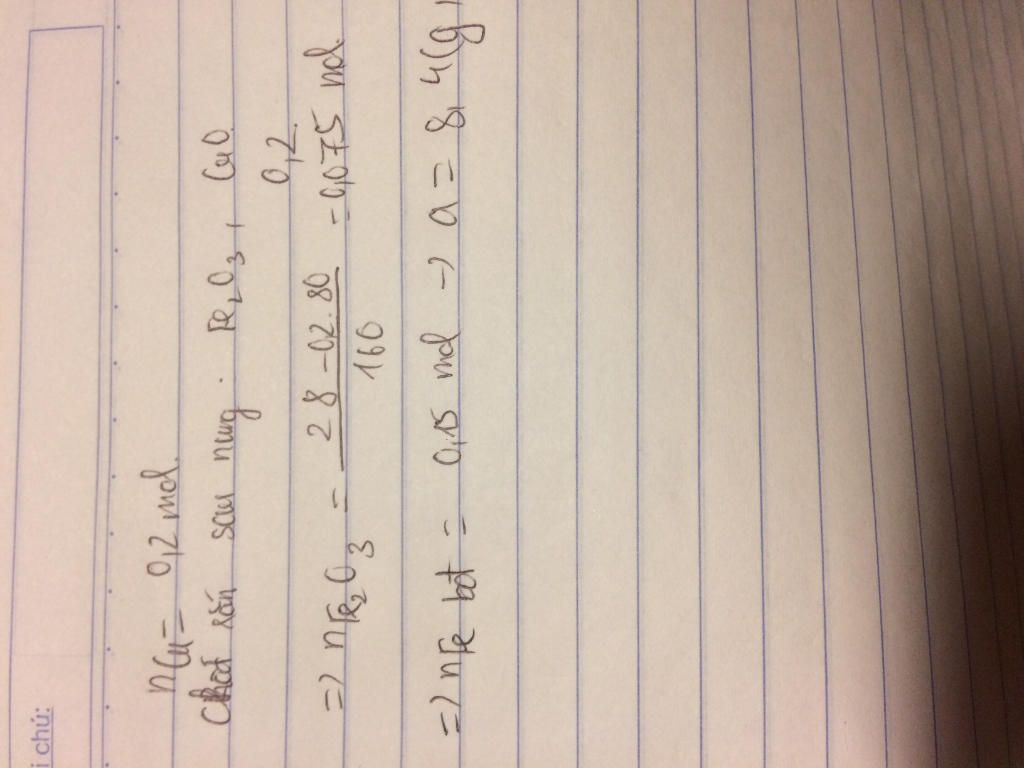 i chú:
nCu = 0,2 mol.
Chất rắn sau nung. Fe2O3, CuO.
0,2
=> nFe2O3 = 28 - 0,2.80 / 160 = 0,075 mol.
=> nFe bđ = 0,15 mol -> a = 8,4(g)